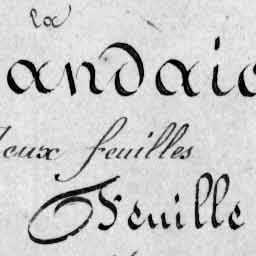 la
andaic
deux feuilles
Feuille